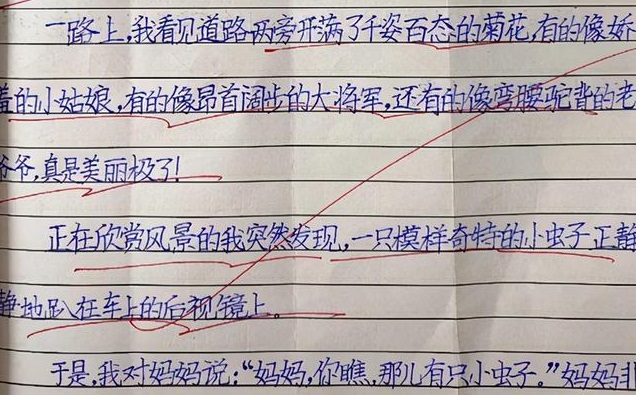 一路上,我看见道路两旁开满了千姿百态的菊花,有的像娇
羞的小姑娘,有的像昂首阔步的大将军,还有的像弯腰驼背的老
爷爷,真是美丽极了!
正在欣赏风景的我突然发现,一只模样奇特的小虫子正静
静地趴在车上的后视镜上。
于是,我对妈妈说:“妈妈,你瞧,那儿有只小虫子。”妈妈非